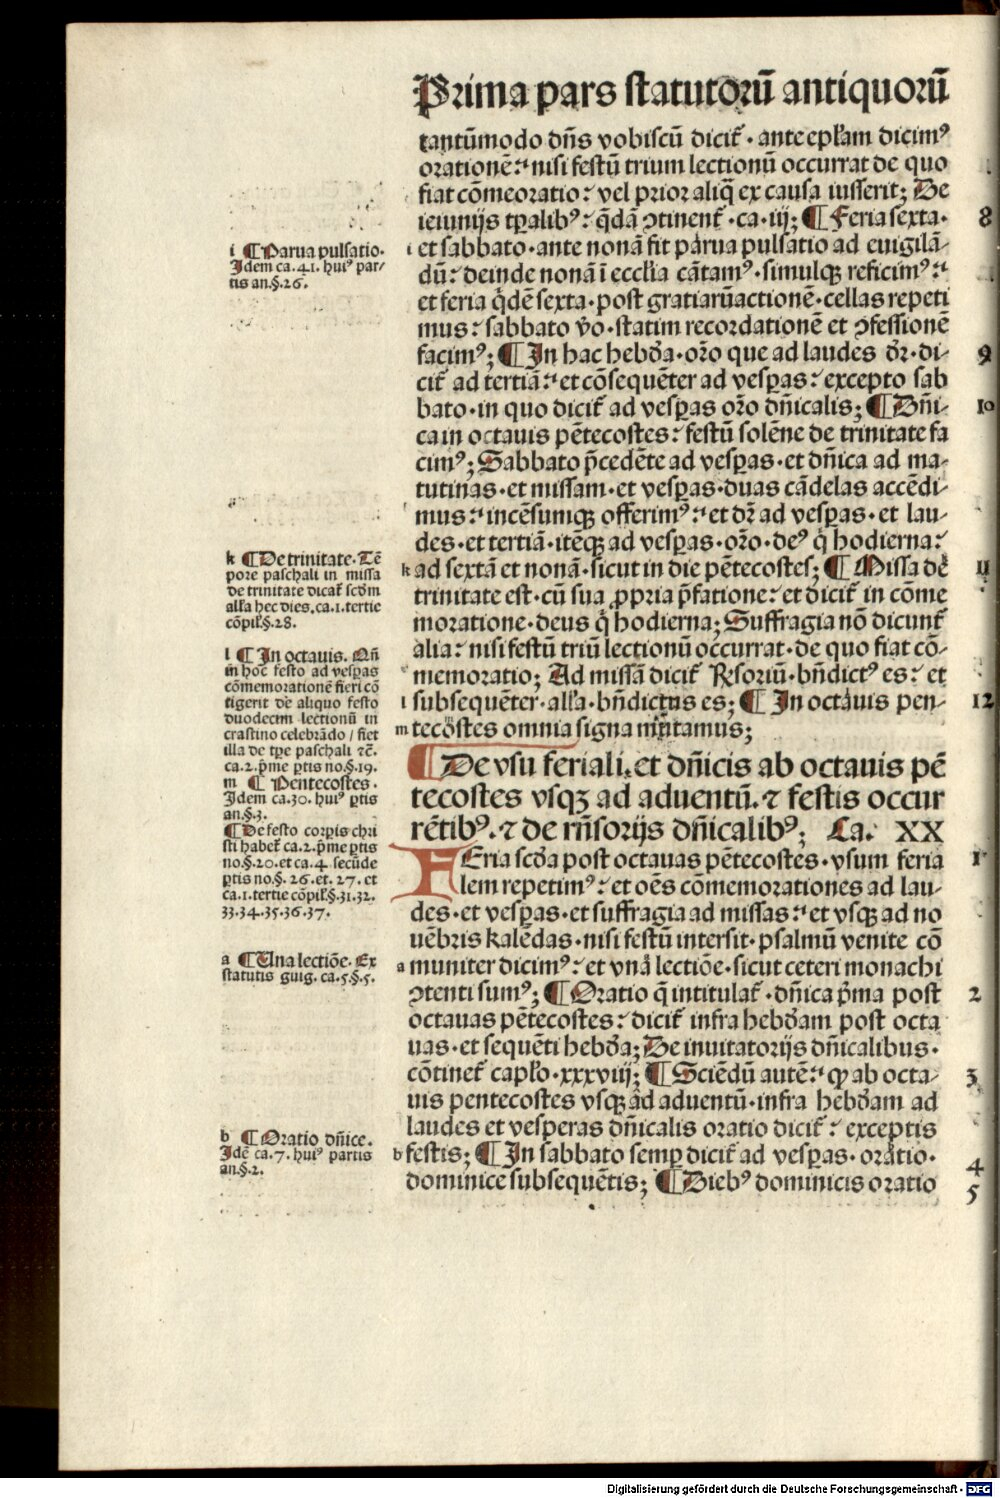 Prima pars statutorū antiquorū
tantūmodo dn̄s vobiscū dicit᷑ · ante epl̄am dicimꝰ
orationē: nisi festū trium lectionū occurrat de quo
fiat cōmeoratio: vel prior aliq̄ ex causa iusserit; De
ieiunijs tp̄alibꝰ: q̄dā ꝯtinent᷑ · ca · iij; ¶ Feria sexta · 8
i et sabbato · ante nonā fit parua pulsatio ad euigilā-
dū: deinde nonā ī ecclīa cātamꝰ · simulqꝫ reficimꝰ:
et feria q̇dē sexta · post gratiarūactionē · cellas repeti
mus: sabbato v̄o · statim recordationē et ꝯfessionē
facimꝰ; ¶ In hac hebd̄a · or̄o que ad laudes dr̄ · di- 9
cit᷑ ad tertiā: et cōsequēter ad vesp̄as: excepto sab
bato · in quo dicit᷑ ad vesp̄as or̄o dn̄icalis; ¶ Dn̄i- 10
ca in octauis pētecostes: festū solēne de trinitate fa
cimꝰ; Sabbato p̄cedēte ad vesp̄as · et dn̄ica ad ma-
tutinas · et missam · et vesp̄as · duas cādelas accēdi-
mus: incēsumqꝫ offerimꝰ: et dr̄ ad vesp̄as · et lau-
des · et tertiā · itēqꝫ ad vesp̄as · or̄o · deꝰ q̇ hodierna:
k ad sextā et nonā · sicut in die pētecostes; ¶ Missa de 11
trinitate est · cū sua ꝓpria p̄fatione: et dicit᷑ in cōme
moratione · deus q̇ hodierna; Suffragia nō dicunt᷑
alia: nisi festū triū lectionū occurrat · de quo fiat cō-
memoratio; Ad missā dicit᷑ Rsoriū · bn̄dictꝰ es: et
l subsequēter · all̄a · bn̄dictus es; ¶ In octauis pen- 12
m tecostes omnia signa mutamus;
¶ De vsu feriali · et dn̄icis ab octauis pē
tecostes vsqꝫ ad aduentū · ⁊ festis occur
rētibꝰ · ⁊ de rn̄sorijs dn̄icalibꝰ; Ca. XX
FEria scd̄a post octauas pētecostes · vsum feria 1
lem repetimꝰ: et oēs cōmemorationes ad lau-
des · et vesp̄as · et suffragia ad missas: et vsqꝫ ad no
uēbris kalēdas · nisi festū intersit · psalmū venite cō
a muniter dicimꝰ: et vnā lectiōe · sicut ceteri monachi
ꝯtenti sumꝰ; ¶ Oratio q̄ intitulat᷑ · dn̄ica p̄ma post 2
octauas pētecostes: dicit᷑ infra hebd̄am post octa
uas · et sequēti hebd̄a; De inuitatorijs dn̄icalibus ·
cōtinet᷑ capl̄o · xxxviij; ¶ Sciēdū autē: ꝙ ab octa- 3
uis pentecostes vsqꝫ ad aduentū · infra hebd̄am ad
laudes et vesperas dn̄icalis oratio dicit᷑: exceptis
b festis; ¶ In sabbato semp̄ dicit᷑ ad vesp̄as · oratio · 4
dominice subsequētis; ¶ Diebꝰ dominicis oratio 5
i ¶ Parua pulsatio.
Idem ca. 41. huiꝰ par-
tis an. §. 26.
k ¶ De trinitate. Tē
pore paschali in missa
de trinitate dicat᷑ scd̄m
all̄a hec dies. ca. 1. tertie
cōpil̄. §. 28.
l ¶ In octauis. Qn̄
in hoc festo ad vesp̄as
cōmemorationē fieri cō
tigerit de aliquo festo
duodecim lectionū in
crastino celebrādo / fiet
illa de tp̄e paschali ⁊c̄.
ca. 2. p̄me p̄tis no. §. 19.
m ¶ Pentecostes.
Idem ca. 30. huiꝰ p̄tis
an. §. 3.
¶ De festo corp̄is chri
sti habet᷑ ca. 2. p̄me p̄tis
no. §. 20. et ca. 4. secūde
p̄tis no. §. 26. et. 27. et
ca. 1. tertie cōpil̄. §. 31. 32.
33. 34. 35. 36. 37.
a ¶ Una lectiōe. Ex
statutis guig. ca. 5. §. 5.
b ¶ Oratio dn̄ice.
Idē ca. 7. huiꝰ partis
an. §. 2.
Digitalisierung gefördert durch die Deutsche Forschungsgemeinschaft · DFG